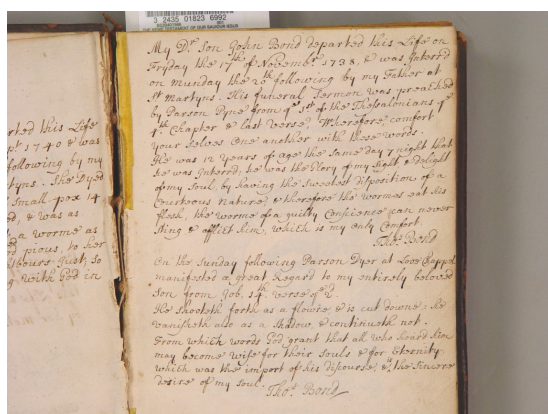 3 2435 01823 6992
rted this Life
pt 1740 & was
following by my
tyns. She Dyed
Small pox 14
d, & was as
a worme as
d pious, to her
hbours Just, so
g with God in
My Dr. Son John Bond departed this Life on
Fryday the 17th of Novembr. 1738, & was Interrd
on Munday the 20th following by my Father at
St Martyns. His funeral Sermon was preached
by Parson Pyne from ye 1st of the Thessalonians ye
4th Chapter & last Verse, Wherefore comfort
your selves one another with these words.
He was 12 years of age the Same day 7 night that
he was Interrd, he was the Glory of my Sight & delight
of my Soul, by having the Sweetest disposition of a
Courteous Nature, & therefore tho worms eat his
flesh, the worme of a guilty Conscience can never
sting & afflict him, which is my only Comfort.
Thos. Bond
On the Sunday following Parson Dyer at Looe Chappel
manifested a great Regard to my entirely beloved
Son from Job. 14th verse ye 2d.
He shooteth forth as a flowre & is cut downe: He
vanisheth also as a Shadow, & continueth not.
From which words God grant that all who heard him
may become Wise for their Souls & for Eternity
which was the import of his discourse, & the Sincere
desire of my Soul.
Thos. Bond